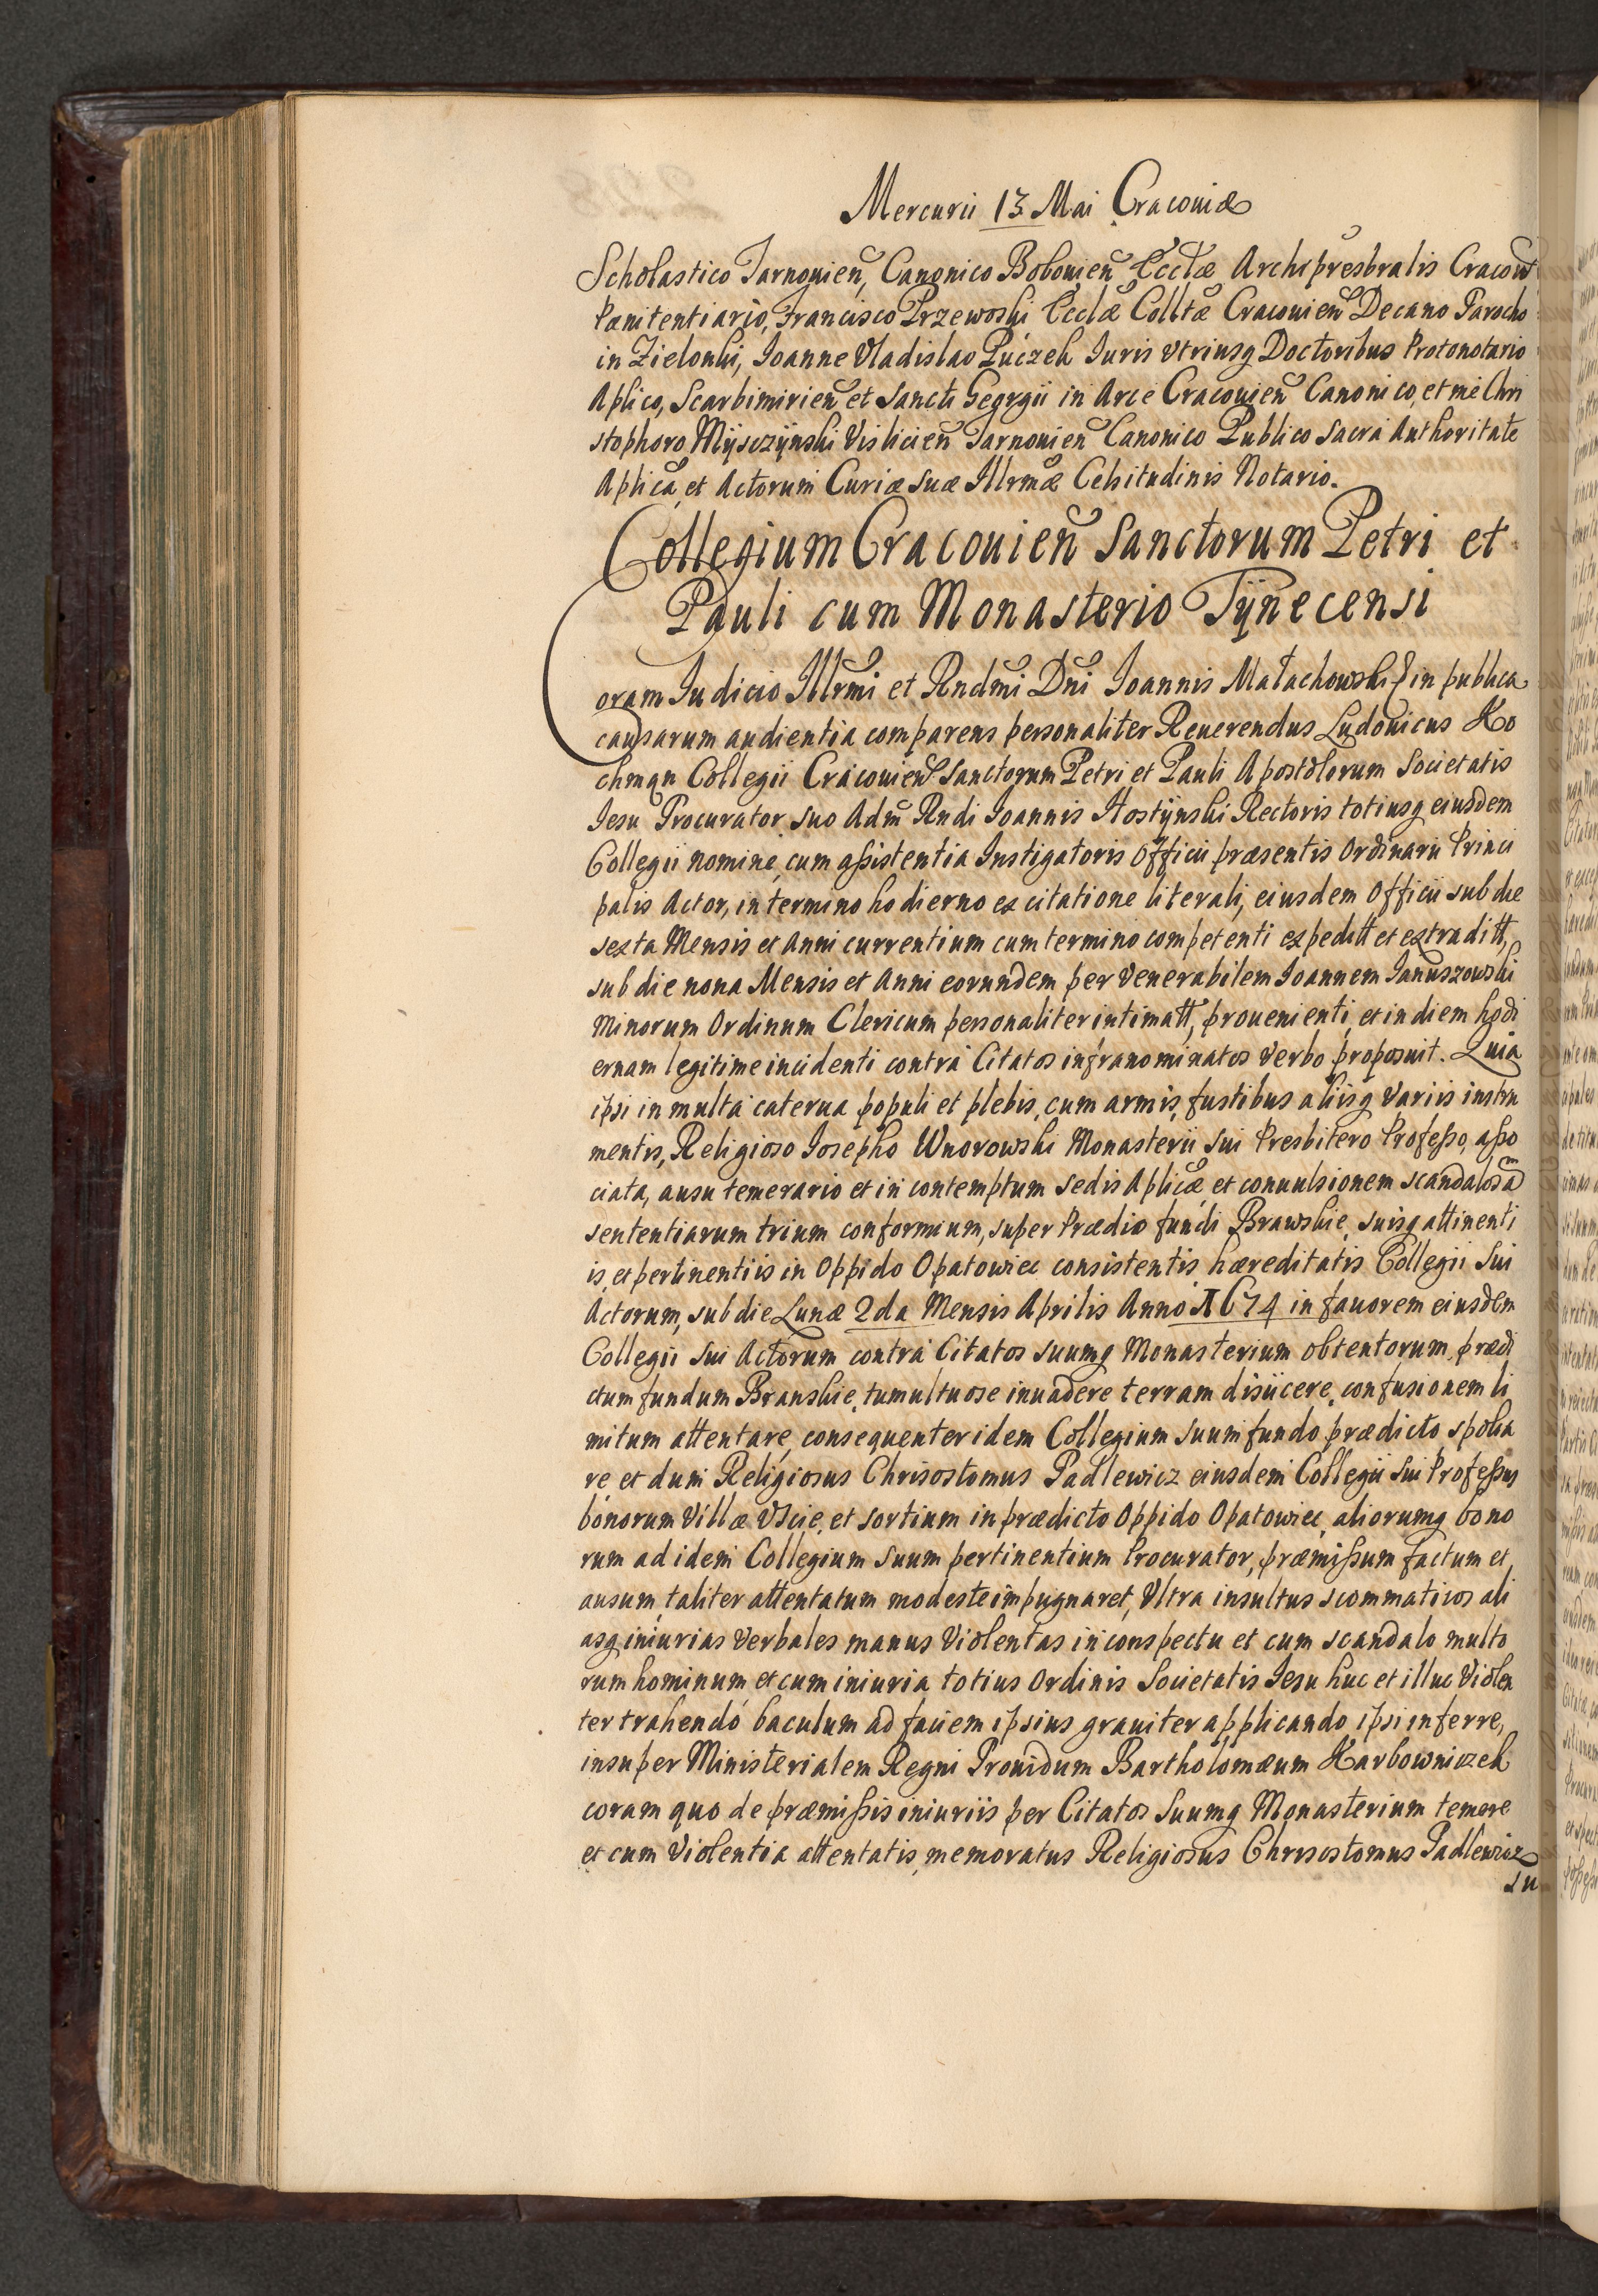 Mercurii 13 Mai Cracouiæ
Scholastico Tarnouień, Canonico Bobouień Ecclæ Archipresbralis Cracouń
Pœnitentiario, Francisco Przewoski Ecclæ Colltæ Cracouień Decano Parocho
in Zielonki, Ioanne Vladislao Puczek Iuris vtriusq Doctoribus Protonotario
Aplico, Scarbimirień et Sancti Georgii in Arce Cracouień Canonico, et me Chri
stophoro Mÿsczÿnski Vislicień Tarnouień Canonico Publico Sacra Authoritate
Aplica, et Actorum Curiæ Suæ Illrmæ Celsitudinis Notario.
Collegium Cracouień Sanctorum Petri et
Pauli cum Monasterio Tÿnecensi
Coram Iudicio Illrmi et Rndmi Dni Ioannis Małachowski in publica
causarum audientia comparens personaliter Reuerendus Ludouicus Ko
chman Collegii Cracouień Sanctorum Petri et Pauli Apostolorum Societatis
Iesu Procurator, suo Adm Rndi Ioannis Hostÿnski Rectoris totiusq eiusdem
Collegii nomine, cum aßistentia Instigatoris Officii præsentis Ordinarii Princi
palis Actor, in termino hodierno ex citatione literali, eiusdem Officii sub die
sexta Mensis et Anni currentium cum termino competenti expeditt et extraditt,
sub die nona Mensis et Anni eorundem per Venerabilem Ioannem Januszowski
Minorum Ordinum Clericum personaliter intimatt, prouenienti, et in diem hodi
ernam legitime incidenti contra Citatos infranominatos verbo proposuit. Quia
ipsi in multa caterua populi et plebis, cum armis, fustibus aliisq variis instru
mentis, Religioso Iosepho Wnorowski Monasterii sui Presbitero Profeßo, aßo
ciata, ausu temerario et in contemptum Sedis Aplicæ, et conuulsionem scandalosam
sententiarum trium conformium, super Prædio fundi Brawskie, suisq attinenti
is, et pertinentiis in Oppido Opatowiec consistentis, hæreditatis Collegii Sui
Actorum, sub die Lunæ 2da Mensis Aprilis Anno 1674 in fauorem eiusdem
Collegii Sui Actorum contra Citatos suumq Monasterium obtentorum, prædi
ctum fundum Branskie, tumultuose inuadere terram disiicere, confusionem li
mitum attentare, consequenter idem Collegium Suum fundo prædicto spolia
re, et dum Religiosus Chrisostomus Padlewicz eiusdem Collegii Sui Profeßus
bonorum Villæ Vscie, et sortium in prædicto Oppido Opatowiec, aliorumq bono
rum ad idem Collegium Suum pertinentium Procurator, præmißum factum et
ausum, taliter attentatum modeste impugnaret, Vltra insultus scommaticos ali
asq iniurias verbales manus Violentas in conspectu et cum scandalo multo
rum hominum et cum iniuria totius Ordinis Societatis Iesu huc et illuc Violen
ter trahendo baculum ad faciem ipsius grauiter applicando, ipsi inferre,
insuper Ministerialem Regni Prouidum Bartholomæum Karbowniczek
coram quo de præmißis iniuriis per Citatos Suumq Monasterium temere
et cum Violentia attentatis, memoratus Religiosus Chrisostomus Padlewicz
su